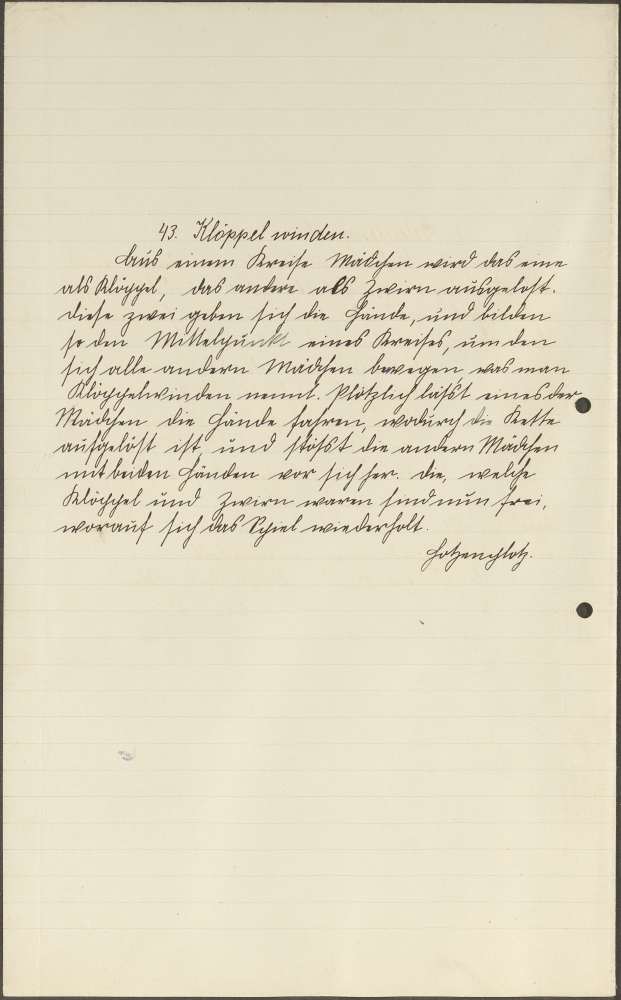 43. Klöppel winden.
Aus einem Kreise Mädchen wird das eine
als Klöppel, das andere als Zwirn ausgelost.
Diese zwei geben sich die Hände, und bilden
so den Mittelpunkt eines Kreises, um den
sich alle andern Mädchen bewegen was man
Klöppelwinden nennt. Plötzlich läßt eines der
Mädchen die Hände fahren, wodurch die Kette
aufgelöst ist und stößt die andern Mädchen
mit beiden Händen vor sich her. Die, welche
Klöppel und Zwirn waren sind nun frei,
worauf sich das Spiel wiederholt.
Hotzenplotz.